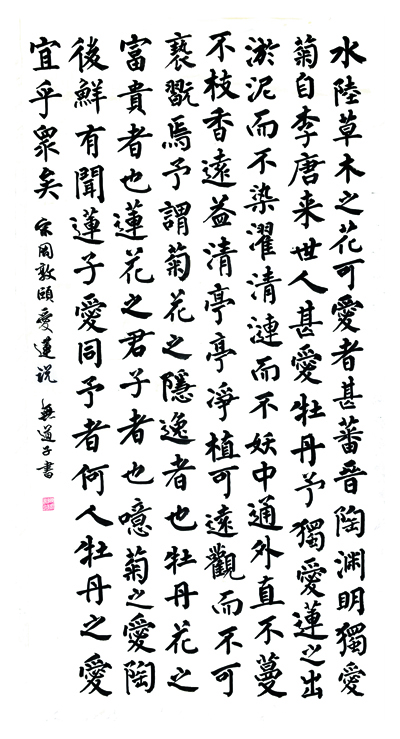 水陸草木之花可愛者甚蕃晉陶渊明獨愛
菊自李唐来世人甚愛牡丹予獨愛蓮之出
淤泥而不染濯清漣而不妖中通外直不蔓
不枝香遠益清亭亭淨植可遠觀而不可
褻翫焉予謂菊花之隱逸者也牡丹花之
富貴者也蓮花之君子者也噫菊之愛陶
後鮮有聞蓮子愛同予者何人牡丹之愛
宜乎眾矣 宋周敦頤愛蓮説 無道子書